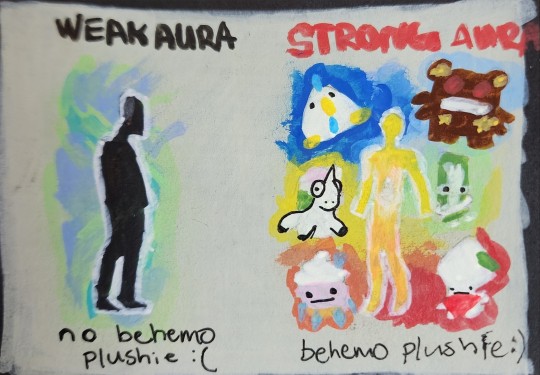 WEAK AURA
STRONG AURA
no behemo
plushie :(
behemo plushie :)